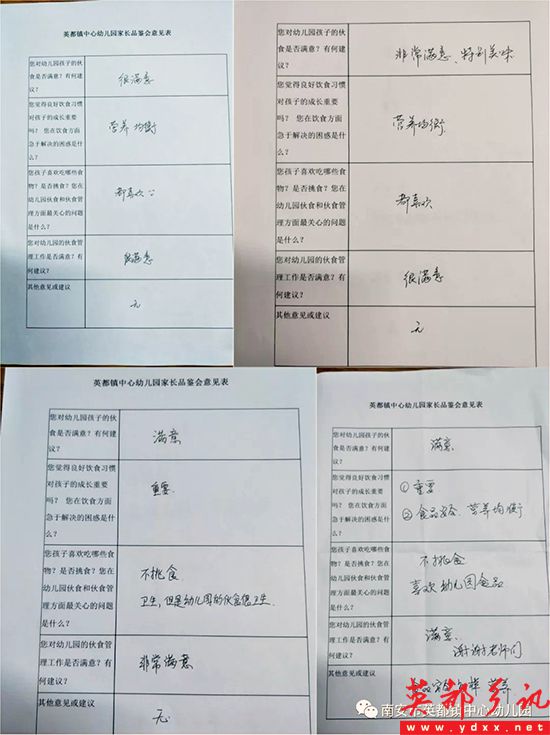 英都镇中心幼儿园家长品鉴会意见表
您对幼儿园孩子的伙
食是否满意？有何建
议？
很满意
您觉得良好饮食习惯
对孩子的成长重要
吗？ 您在饮食方面
急于解决的困惑是什
么？
营养均衡
您孩子喜欢吃哪些食
物？是否挑食？您在
幼儿园伙食和伙食管
理方面最关心的问题
是什么？
都喜欢
您对幼儿园的伙食管
理工作是否满意？有
何建议？
很满意
其他意见或建议
无
您对幼儿园孩子的伙
食是否满意？有何建
议？
非常满意、特别美味
您觉得良好饮食习惯
对孩子的成长重要
吗？ 您在饮食方面
急于解决的困惑是什
么？
营养均衡
您孩子喜欢吃哪些食
物？是否挑食？您在
幼儿园伙食和伙食管
理方面最关心的问题
是什么？
都喜欢
您对幼儿园的伙食管
理工作是否满意？有
何建议？
很满意
其他意见或建议
无
英都镇中心幼儿园家长品鉴会意见表
您对幼儿园孩子的伙
食是否满意？有何建
议？
满意
您觉得良好饮食习惯
对孩子的成长重要
吗？ 您在饮食方面
急于解决的困惑是什
么？
重要
您孩子喜欢吃哪些食
物？是否挑食？您在
幼儿园伙食和伙食管
理方面最关心的问题
是什么？
不挑食
卫生，但是幼儿园的伙食很卫生
您对幼儿园的伙食管
理工作是否满意？有
何建议？
非常满意
其他意见或建议
无
英都镇中心幼儿园家长品鉴会意见表
您对幼儿园孩子的伙
食是否满意？有何建
议？
满意
您觉得良好饮食习惯
对孩子的成长重要
吗？ 您在饮食方面
急于解决的困惑是什
么？
①重要
②食品安全、营养均衡
您孩子喜欢吃哪些食
物？是否挑食？您在
幼儿园伙食和伙食管
理方面最关心的问题
是什么？
不挑食
喜欢幼儿园食品
您对幼儿园的伙食管
理工作是否满意？有
何建议？
满意
谢谢老师们
其他意见或建议
南安市英都镇中心幼儿园
英都乡讯
www.ydxx.net